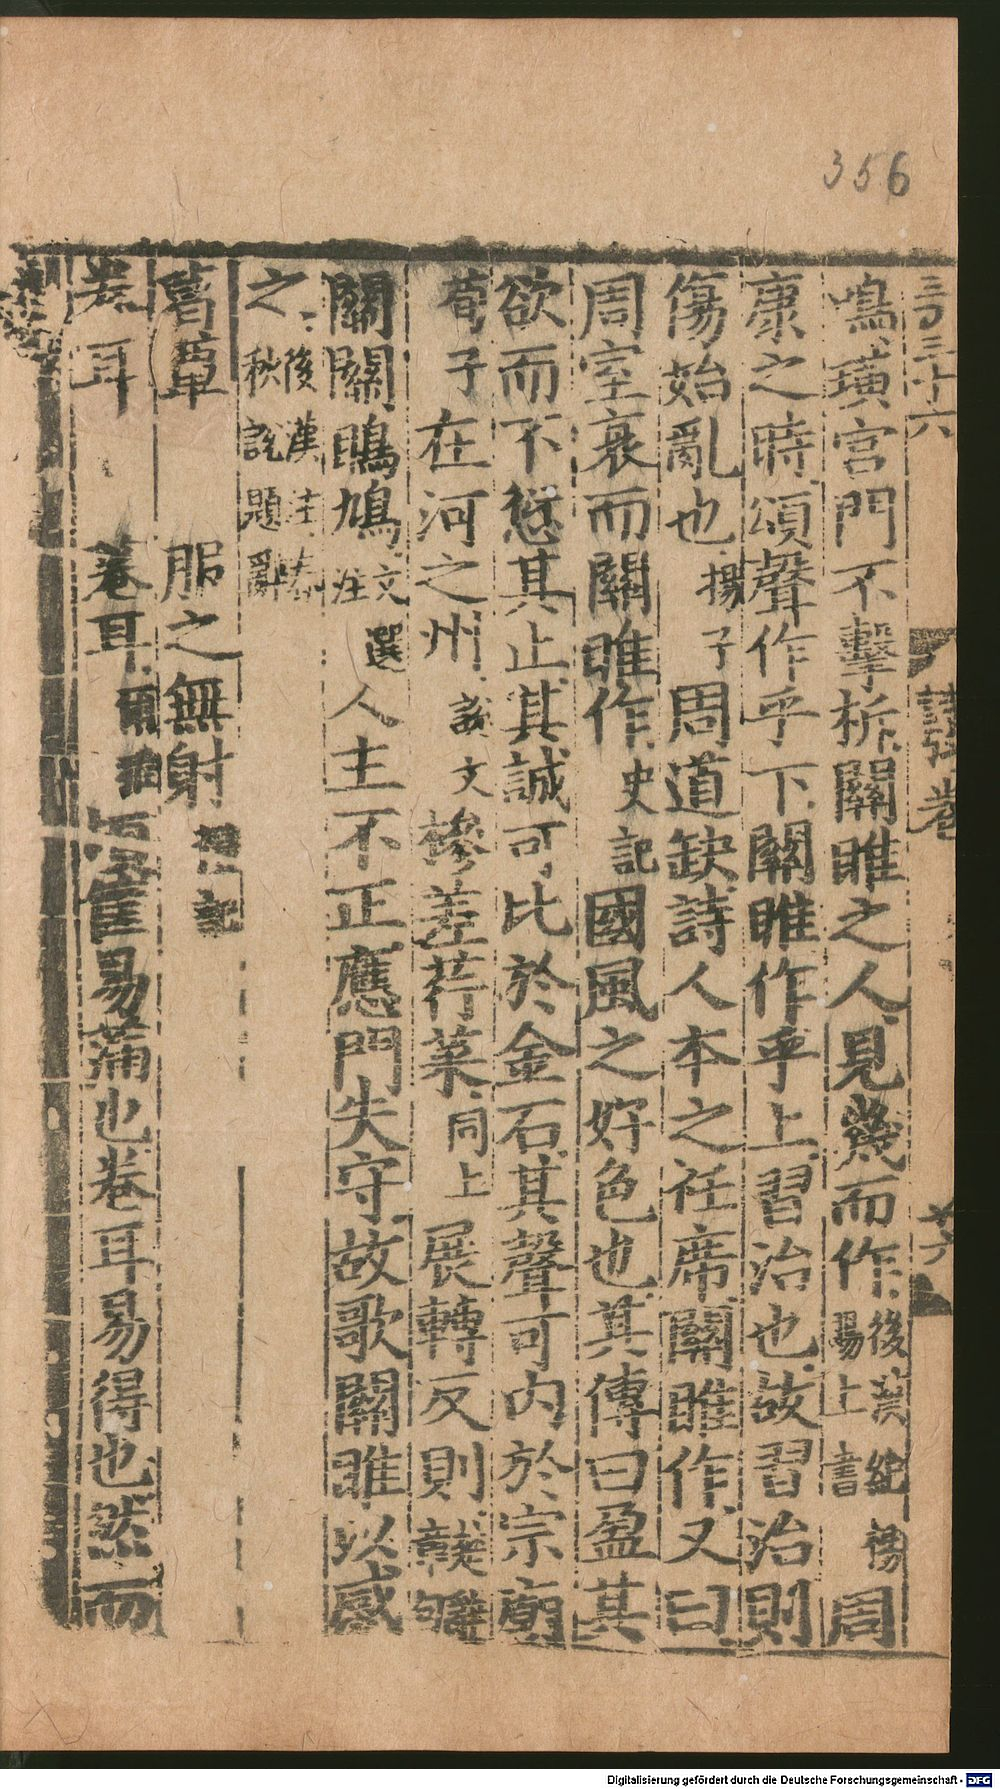 356
鳴璜宮門不擊柝關雎之人見幾而作後漢楊賜上書周
康之時頌聲作乎下關雎作乎上習治也故習治則
傷始亂也揚子周道缺詩人本之衽席關雎作又曰
周室衰而關雎作史記國風之好色也其傳曰盈其
欲而不愆其止其誠可比於金石其聲可內於宗廟
荀子在河之州說文槮差荇菜同上展轉反則
關關鴡鳩文選注人主不正應門失守故歌關雎以感
之後漢注春秋說題辭
葛覃 服之無射禮記
卷耳 菤耳爾雅
易得也然而
Digitalisierung gefördert durch die Deutsche Forschungsgemeinschaft - DFG